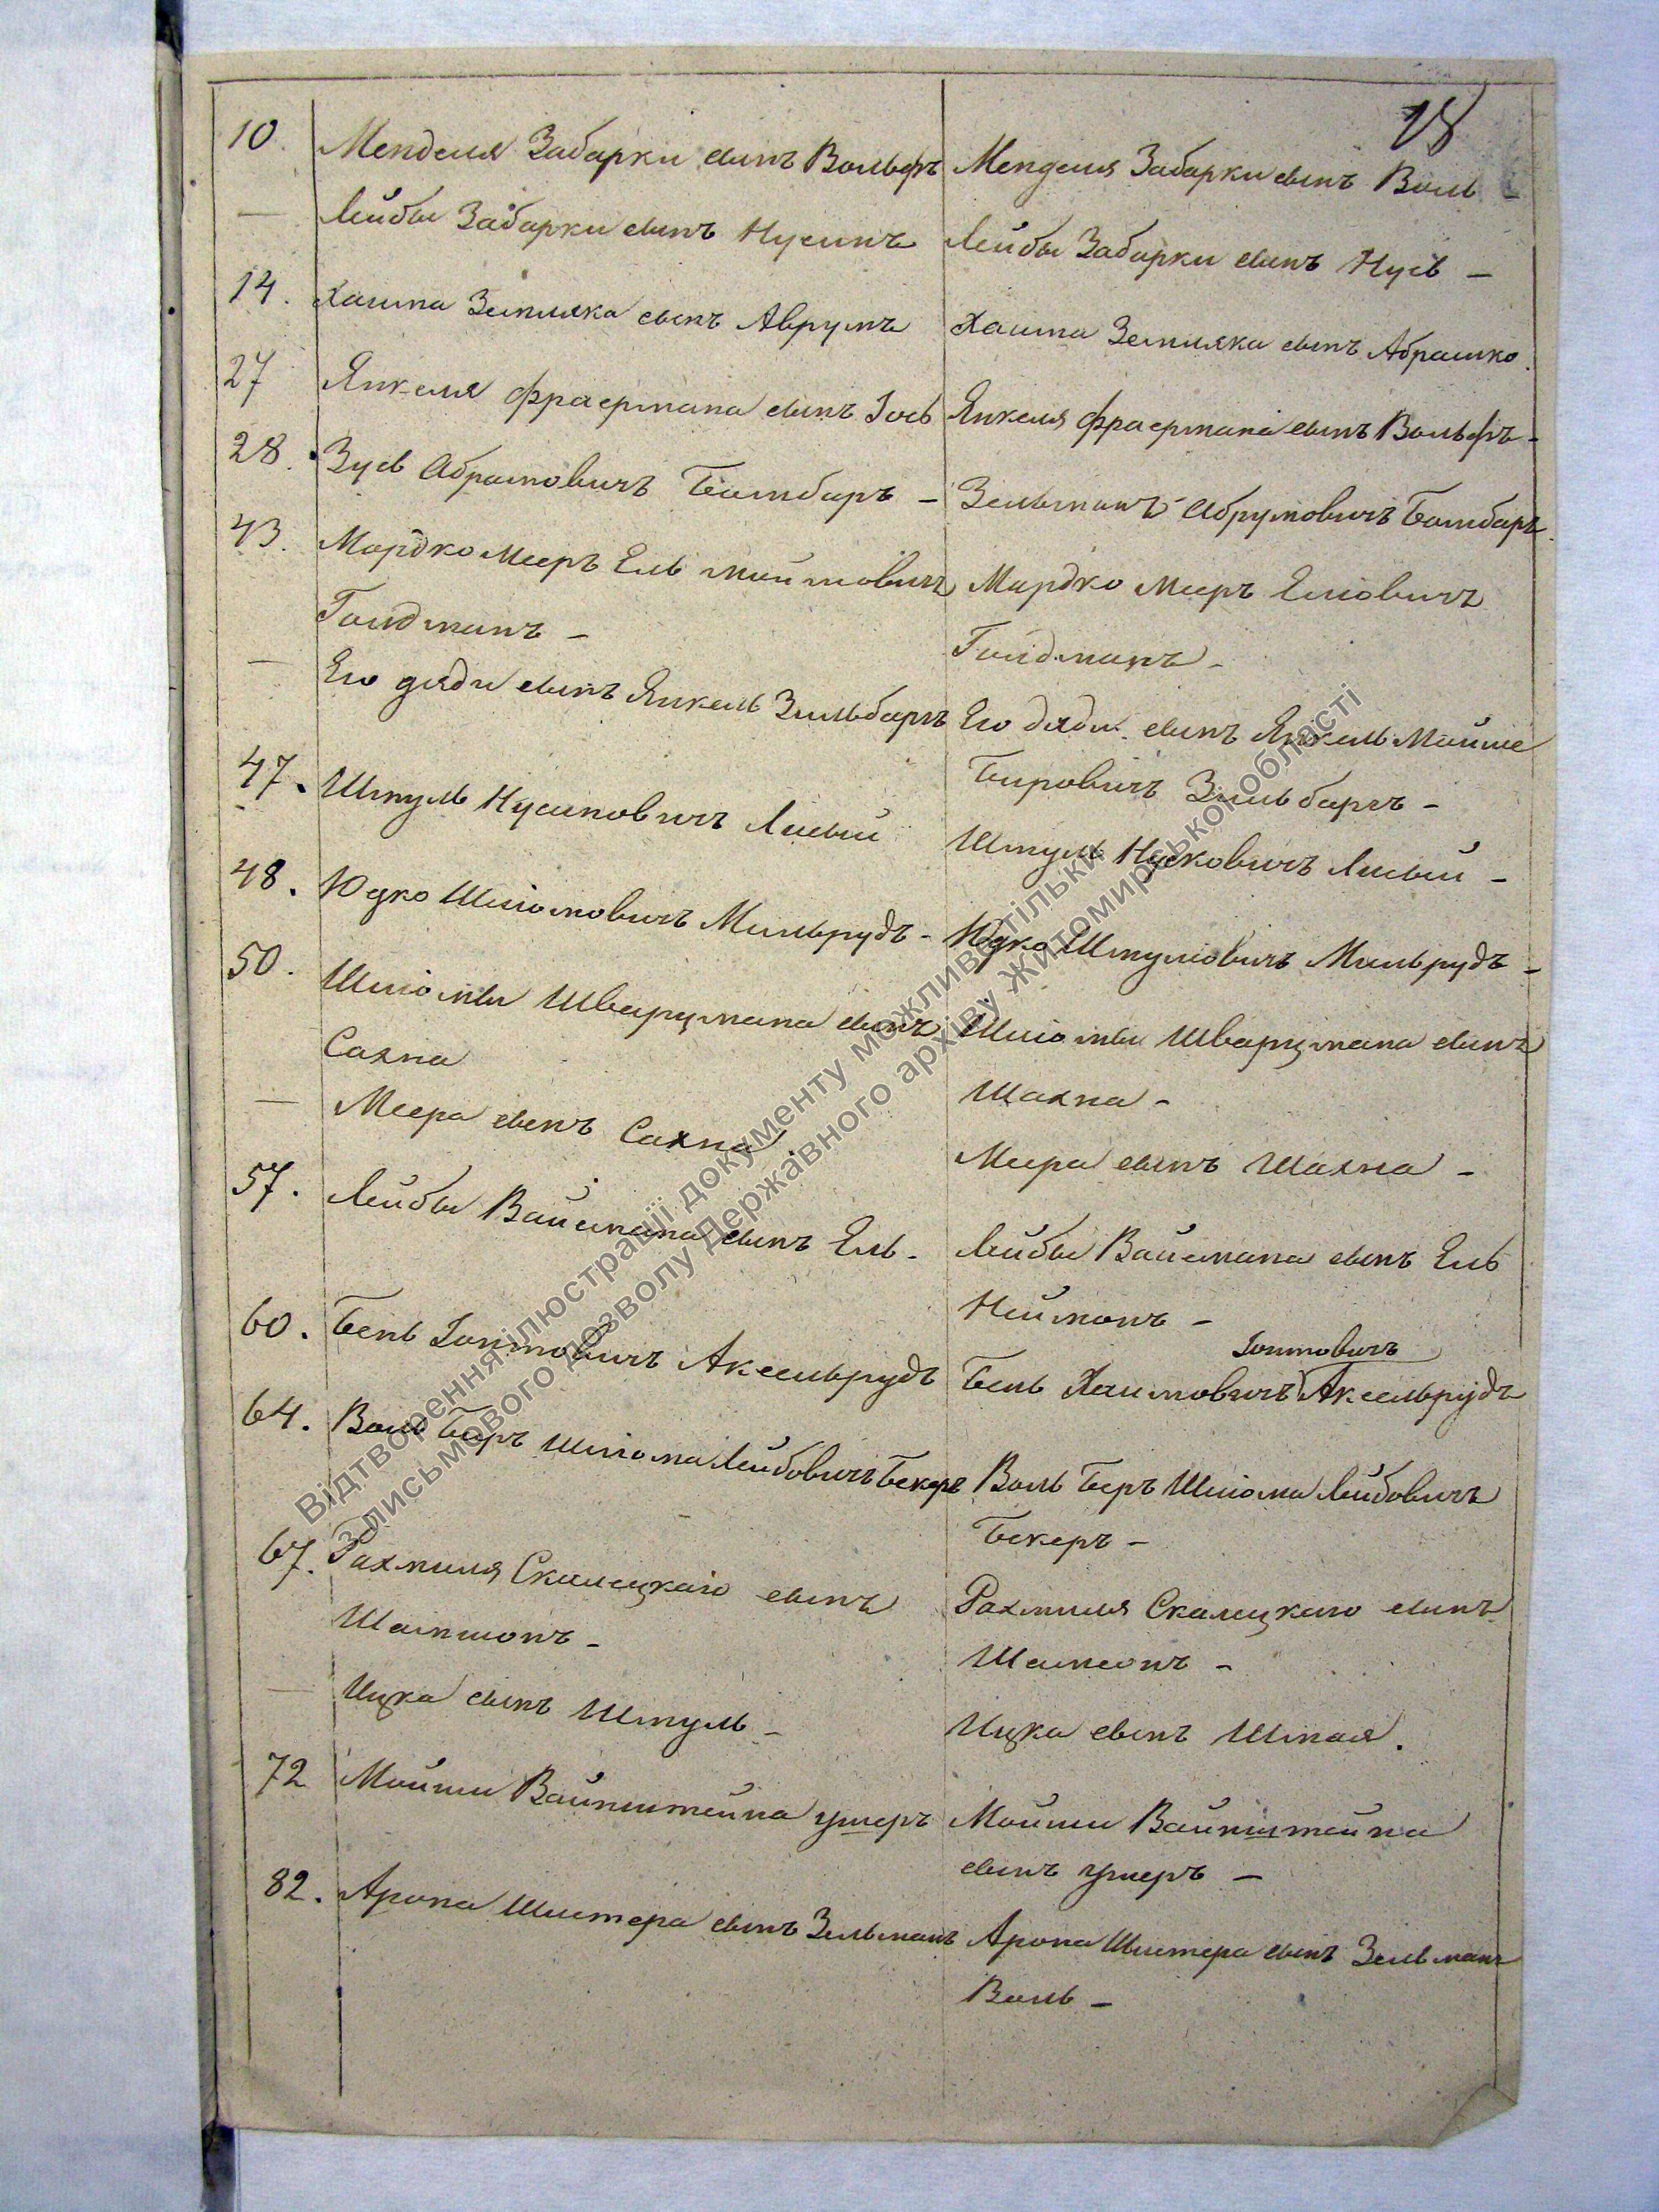 18
10. Менделя Забарки сынъ Вольфъ Менделя Забарки сынъ Воль
— Лейбы Забарки сынъ Нусинъ Лейбы Забарки сынъ Нусь —
14. Хаима Земляка сынъ Аврумъ Хаима Земляка сынъ Абрашко.
27 Янкеля Фраермана сынъ Іось Янкеля Фраермана сынъ Вольфъ —
28. Зусь Абрамовичъ Бамбаръ — Зельманъ Абрумовичъ Бамбаръ.
43. Мордко Мееръ Ель Маймовичъ Мордко Мееръ Еліовичъ
Голдманъ — Голдманъ —
— Его дяди сынъ Янкель Зильбаръ Его дяди сынъ Янкель Мойше
Бировичъ Зильбаръ —
47. Шмуль Нусиновичъ Лисый Шмуль Нусковичъ Лисый —
48. Юдко Шліомовичъ Мильрудъ — Юдко Шмуліовичъ Мильрудъ —
50. Шліомы Шварцмана сынъ Шліомы Шварцмана сынъ
Сахна Шахна —
— Меера сынъ Сахна. Меера сынъ Шахна —
57. Лейбы Вайсмана сынъ Ель — Лейбы Вайсмана сынъ Ель
Нейманъ —
Іонтовичъ
60. Бень Іонтовичъ Аксельрудъ Бень Хаимовичъ Аксельрудъ
64. Воль Беръ Шліома Лейбовичъ Бекеръ Воль Беръ Шліома Лейбовичъ
Бекеръ —
67. Рахмиля Скалецкаго сынъ Рахмиля Скалецкаго сынъ
Шапшонъ — Шамсонъ —
— Ицка сынъ Шмуль — Ицка сынъ Шмая.
72 Мойши Вайнштейна умеръ Мойши Вайнштейна
сынъ умеръ —
82. Арона Шистера сынъ Зельманъ Арона Шистера сынъ Зельманъ
Воль —
Відтворення ілюстрації документу можливе тільки
з письмового дозволу Державного архіву Житомирської області